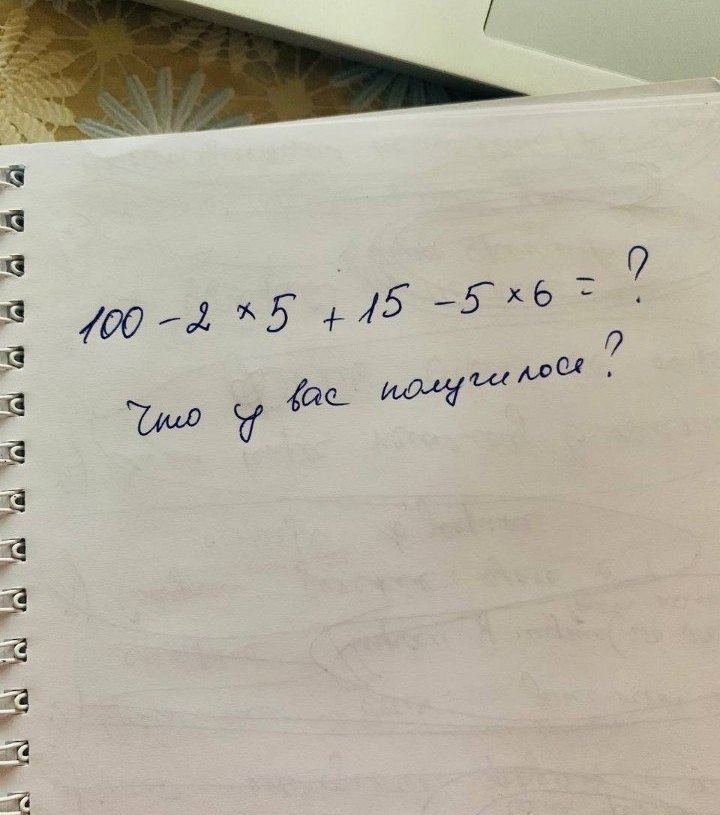 100 - 2 × 5 + 15 - 5 × 6 = ?
Что у вас получилось?